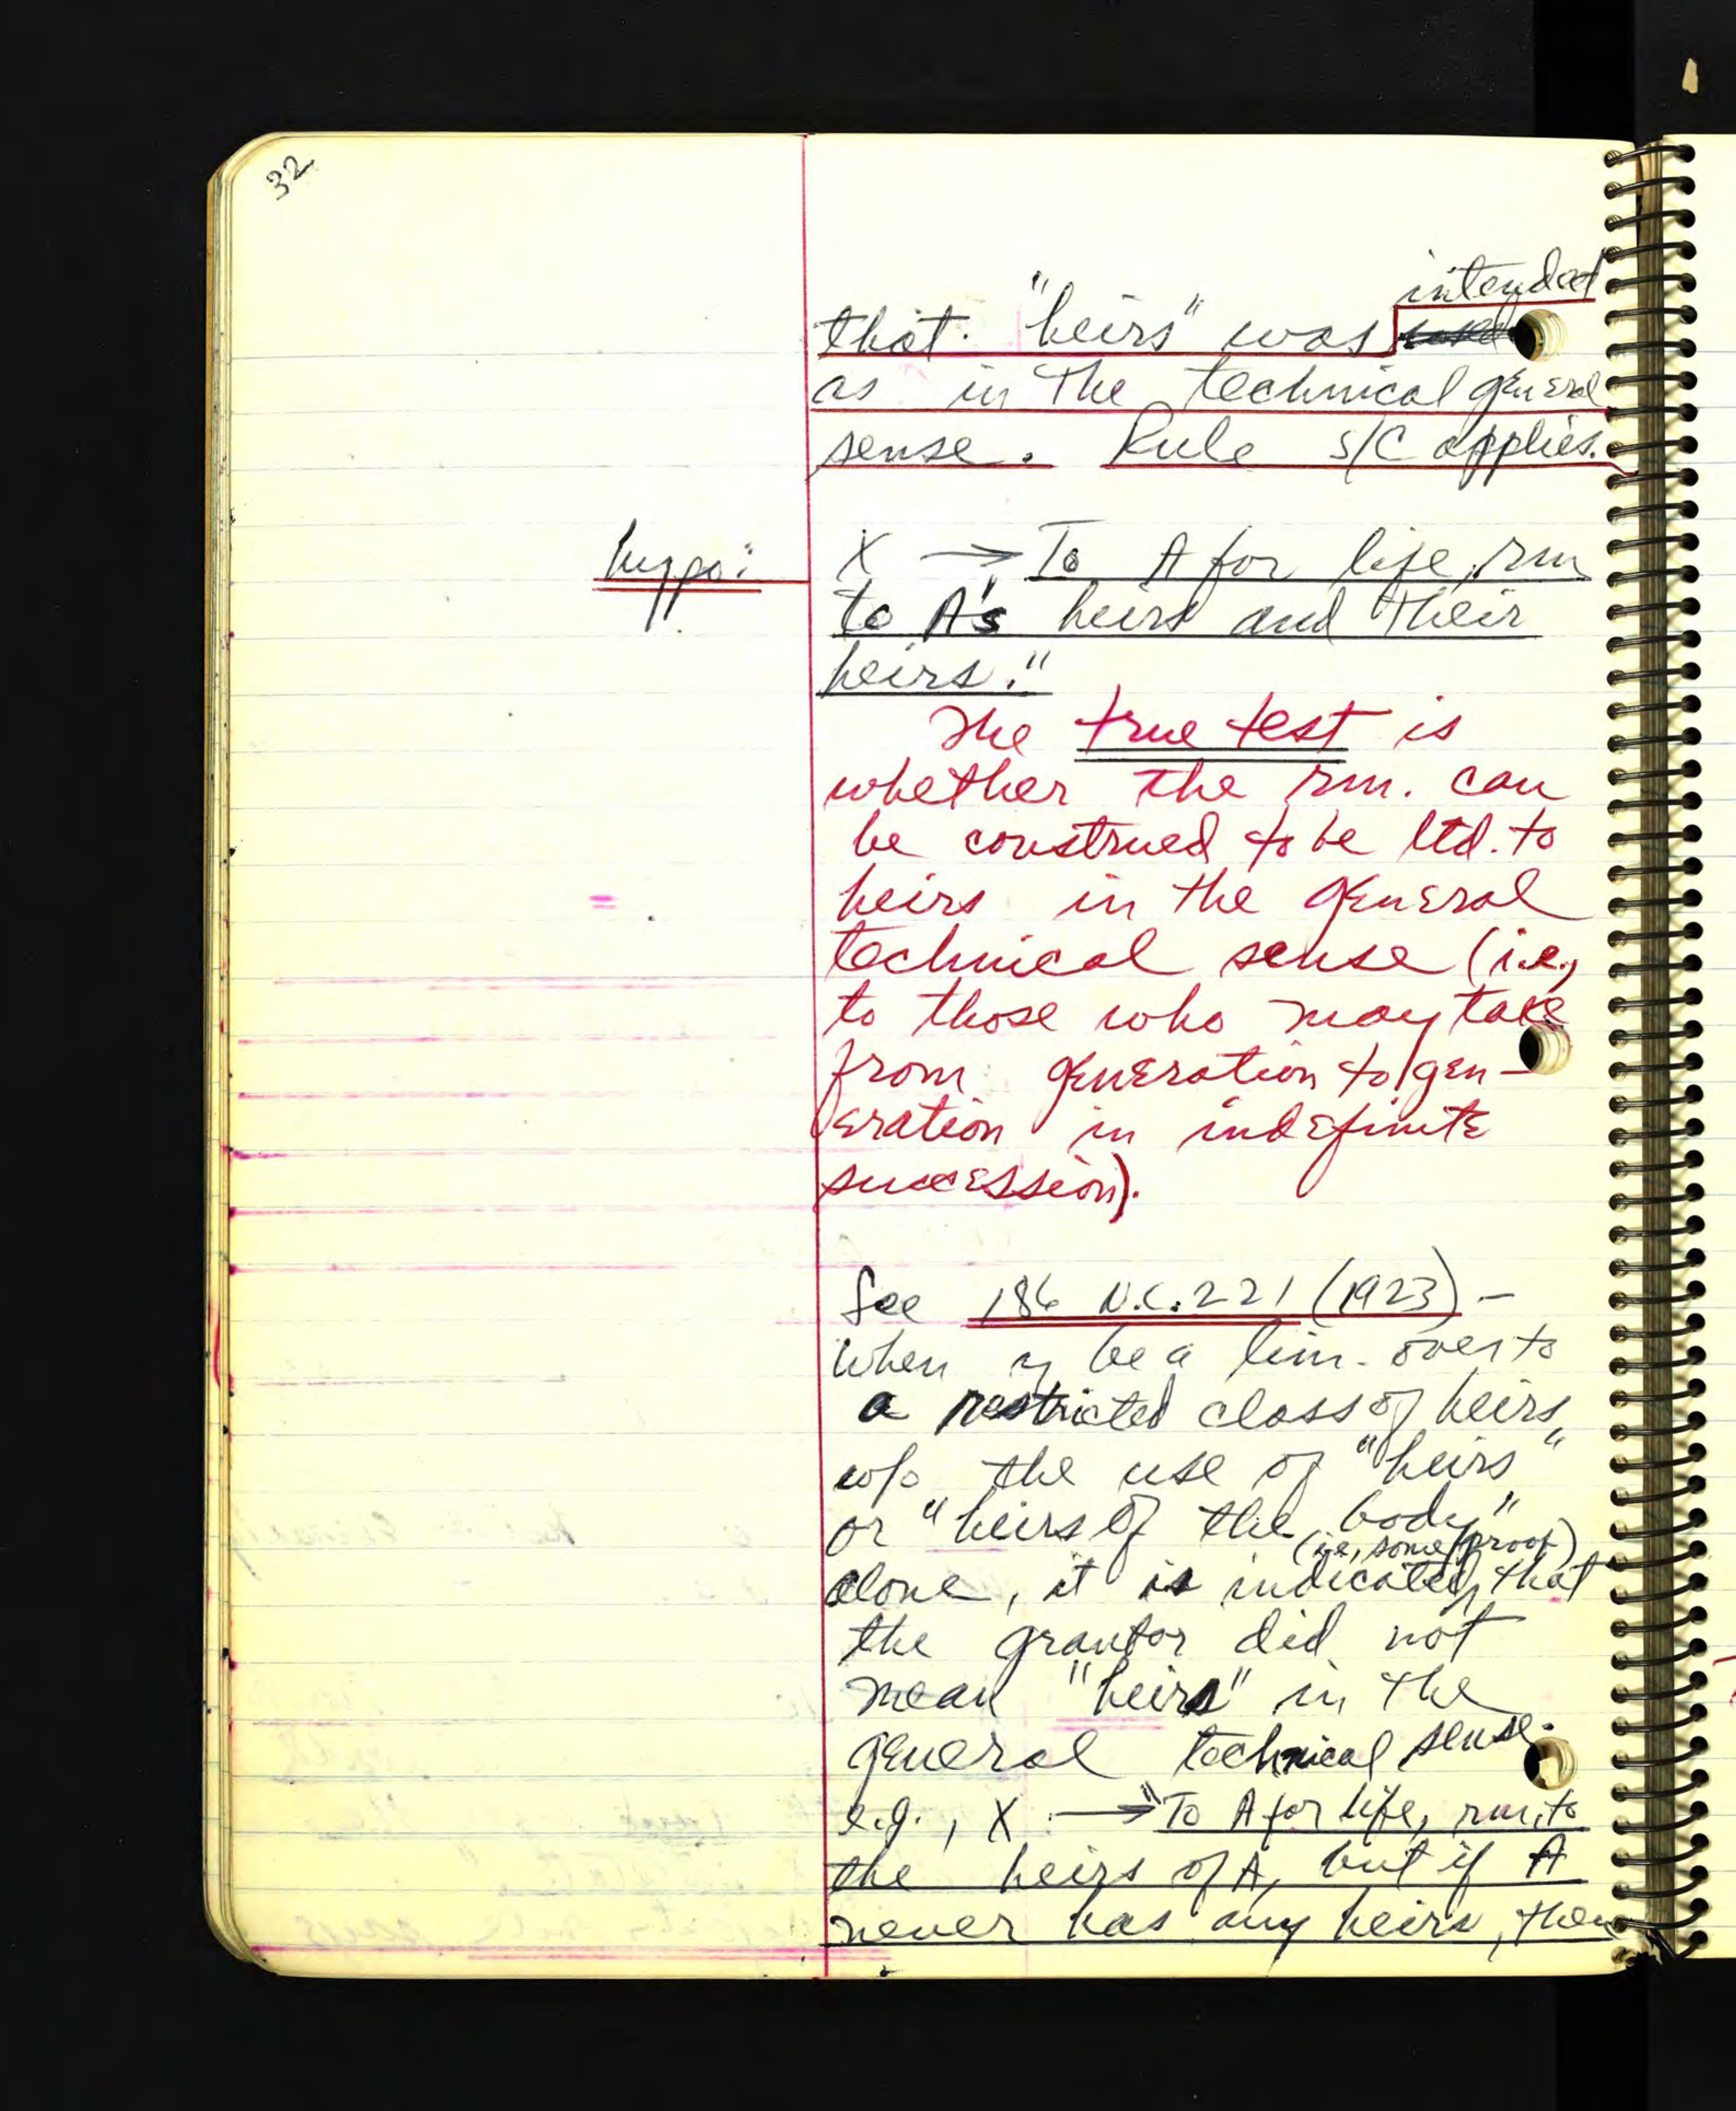 32
intended
that "heirs" was
as in the technical general
sense. Rule S/C applies.
hypo: X → To A for life, rm
to A's heirs and their
heirs."
The true test is
whether the rm. can
be construed to be ltd. to
heirs in the general
technical sense (i.e.,
to those who may take
from generation to gen-
eration in indefinite
succession).
See 186 N.C. 221 (1923) -
when be a lim. over to
a restricted class of heirs,
w/o the use of "heirs"
or "heirs of the body"
(i.e., some proof)
alone, it is indicated, that
the grantor did not
mean "heirs" in the
general technical sense.
e.g., X → "To A for life, rm. to
the heirs of A, but if A
never has any heirs, then